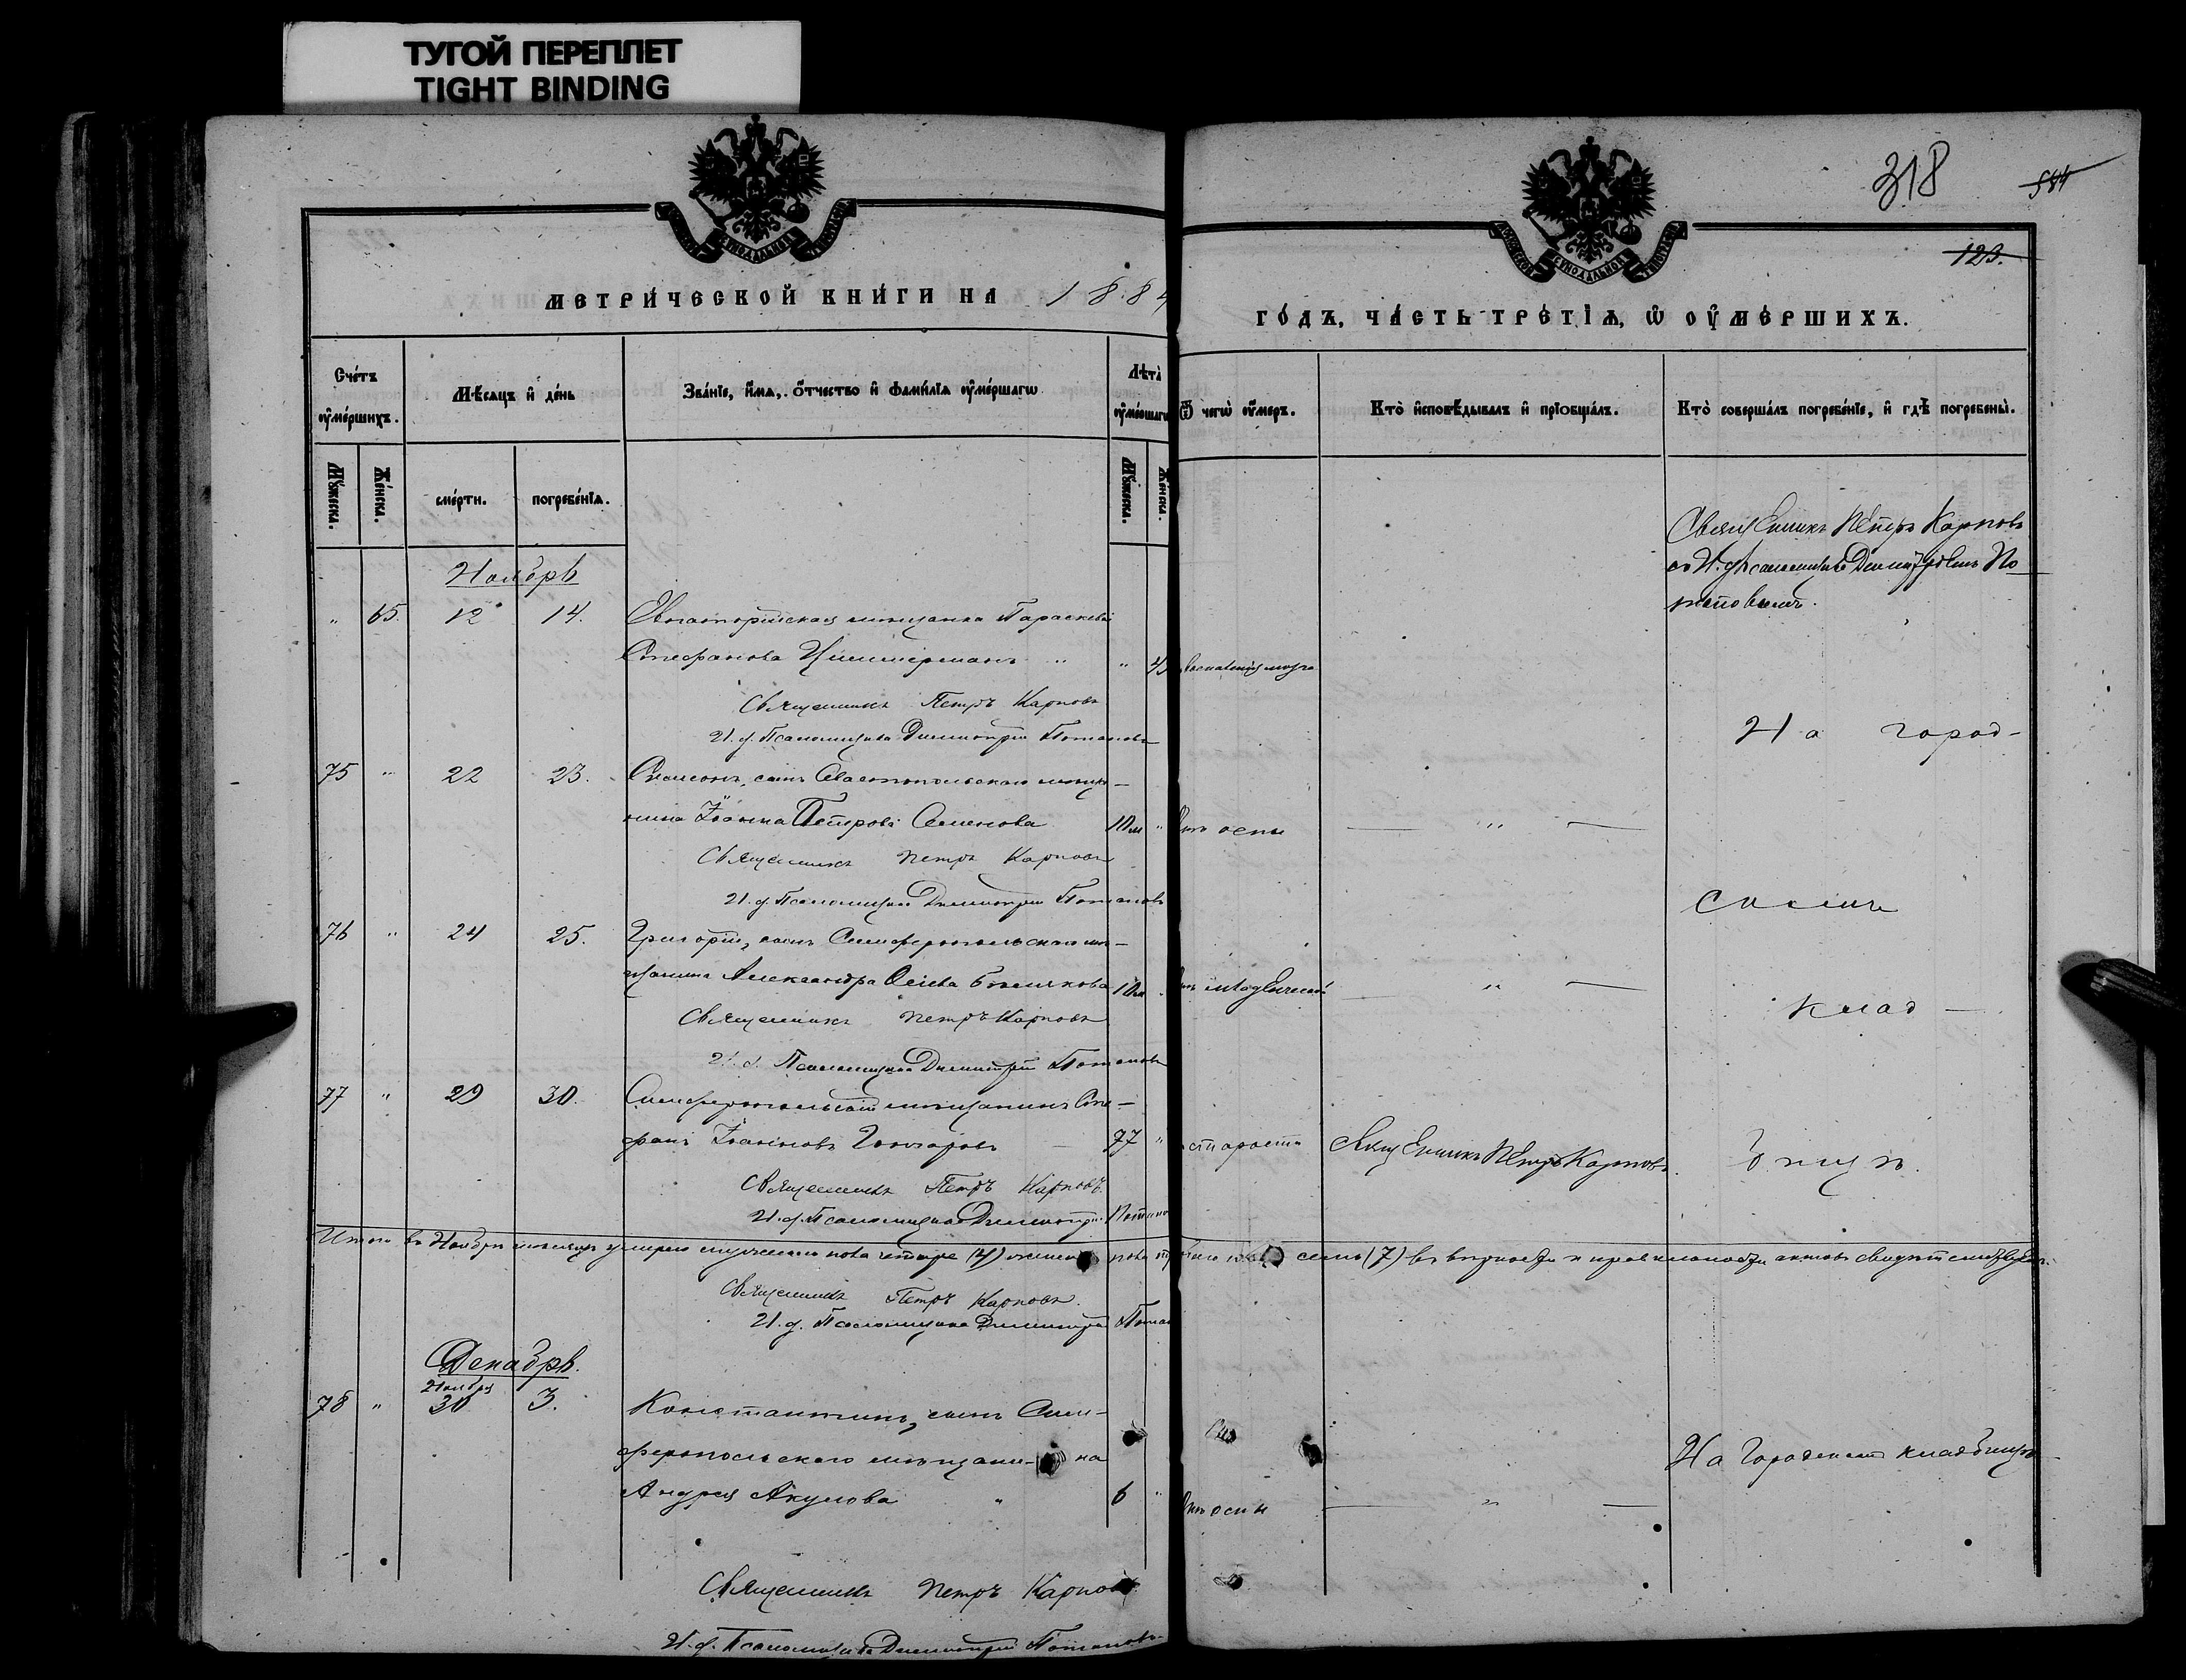 ТУГОЙ ПЕРЕПЛЕТ
TIGHT BINDING
МЕТРИЧЕСКОЙ КНИГИ НА 1884
Счетъ умершихъ.
Мѣсяцъ и день
Званіе, имя, отчество и фамилія умершагѡ
Лѣта умершагѡ
Мужеска.
Женска.
смерти.
погребенія.
Мужеска.
Женска.
Ноябрь
" 65. 12 14. Евпаторійская мѣщанка Параскева
Стефанова Циммерманъ " " 45
Священникъ Петръ Карповъ
И. д. Псаломщика Димитрій Потаповъ
75 " 22 23. Симеонъ, сынъ Севастопольскаго мѣща-
нина Іоанна Петрова Семенова 10м "
Священникъ Петръ Карповъ
И. д. Псаломщика Димитрій Потаповъ
76 " 24 25. Григорій, сынъ Симферопольскаго мѣ-
щанина Александра 10м
Священникъ Петръ Карповъ
И. д. Псаломщика Димитрій Потаповъ
77 " 29 30. Симферопольскій мѣщанинъ Сте-
фанъ Іоанновъ Гончаровъ 77 "
Священникъ Петръ Карповъ
И. д. Псаломщика Димитрій Потапо
Итого въ Ноябрѣ мѣсяцѣ умерло мужескаго пола четыре (4) женск пола
Священникъ Петръ Карповъ.
И. д. Псаломщика Димитрій Потап
Декабрь.
78 " Ноября 30 3. Константинъ, сынъ Сим-
феропольскаго мѣщани-на
Андрея Акулова " 6 "
Священникъ Петръ Карповъ.
И. д. Псаломщика Димитрій Потаповъ
318
584
123.
ГОДЪ, ЧАСТЬ ТРЕТІЯ, Ѡ ОУМЕРШИХЪ.
Ѿ чегѡ умеръ.
Кто исповѣдывалъ и пріобщалъ.
Кто совершалъ погребеніе, и гдѣ погребены.
Священникъ Петръ Карповъ
съ И. д. Псаломщика Димитріемъ По
таповымъ.
воспаленія мозга
На город-
отъ оспы "
скомъ
"
клад-
старости Священникъ Петръ Карповъ.
бищѣ.
семь (7) въ вѣрности и правильности актовъ свидѣтельствуемъ.
На Городскомъ кладбищѣ
отъ оспы "